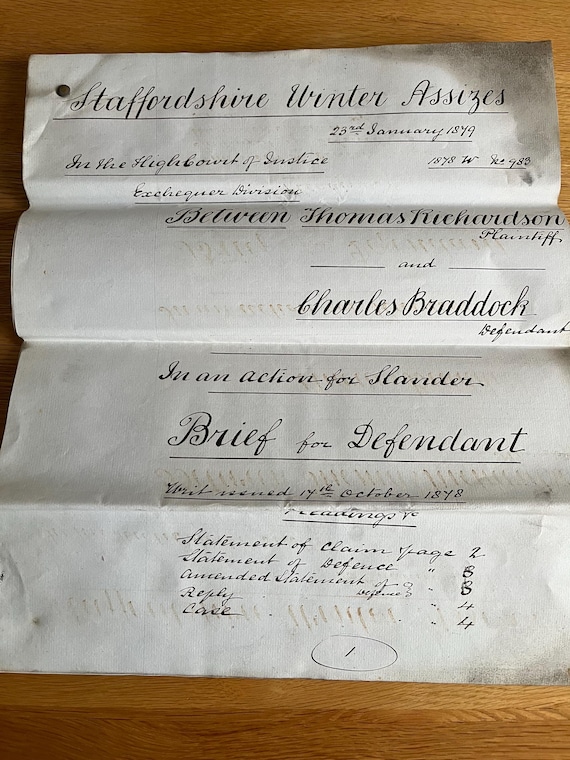 Staffordshire Winter Assizes
23rd January 1879
In the High Court of Justice
1878 W No 983
Exchequer Division
Between Thomas Richardson
Plaintiff
and
Charles Braddock
Defendant
In an action for Slander
Brief for Defendant
Writ issued 17th October 1878
Pleadings &c
Statement of Claim page 2
Statement of Defence " 3
Amended Statement of Defence } " 3
Reply " 4
Case " 4
1